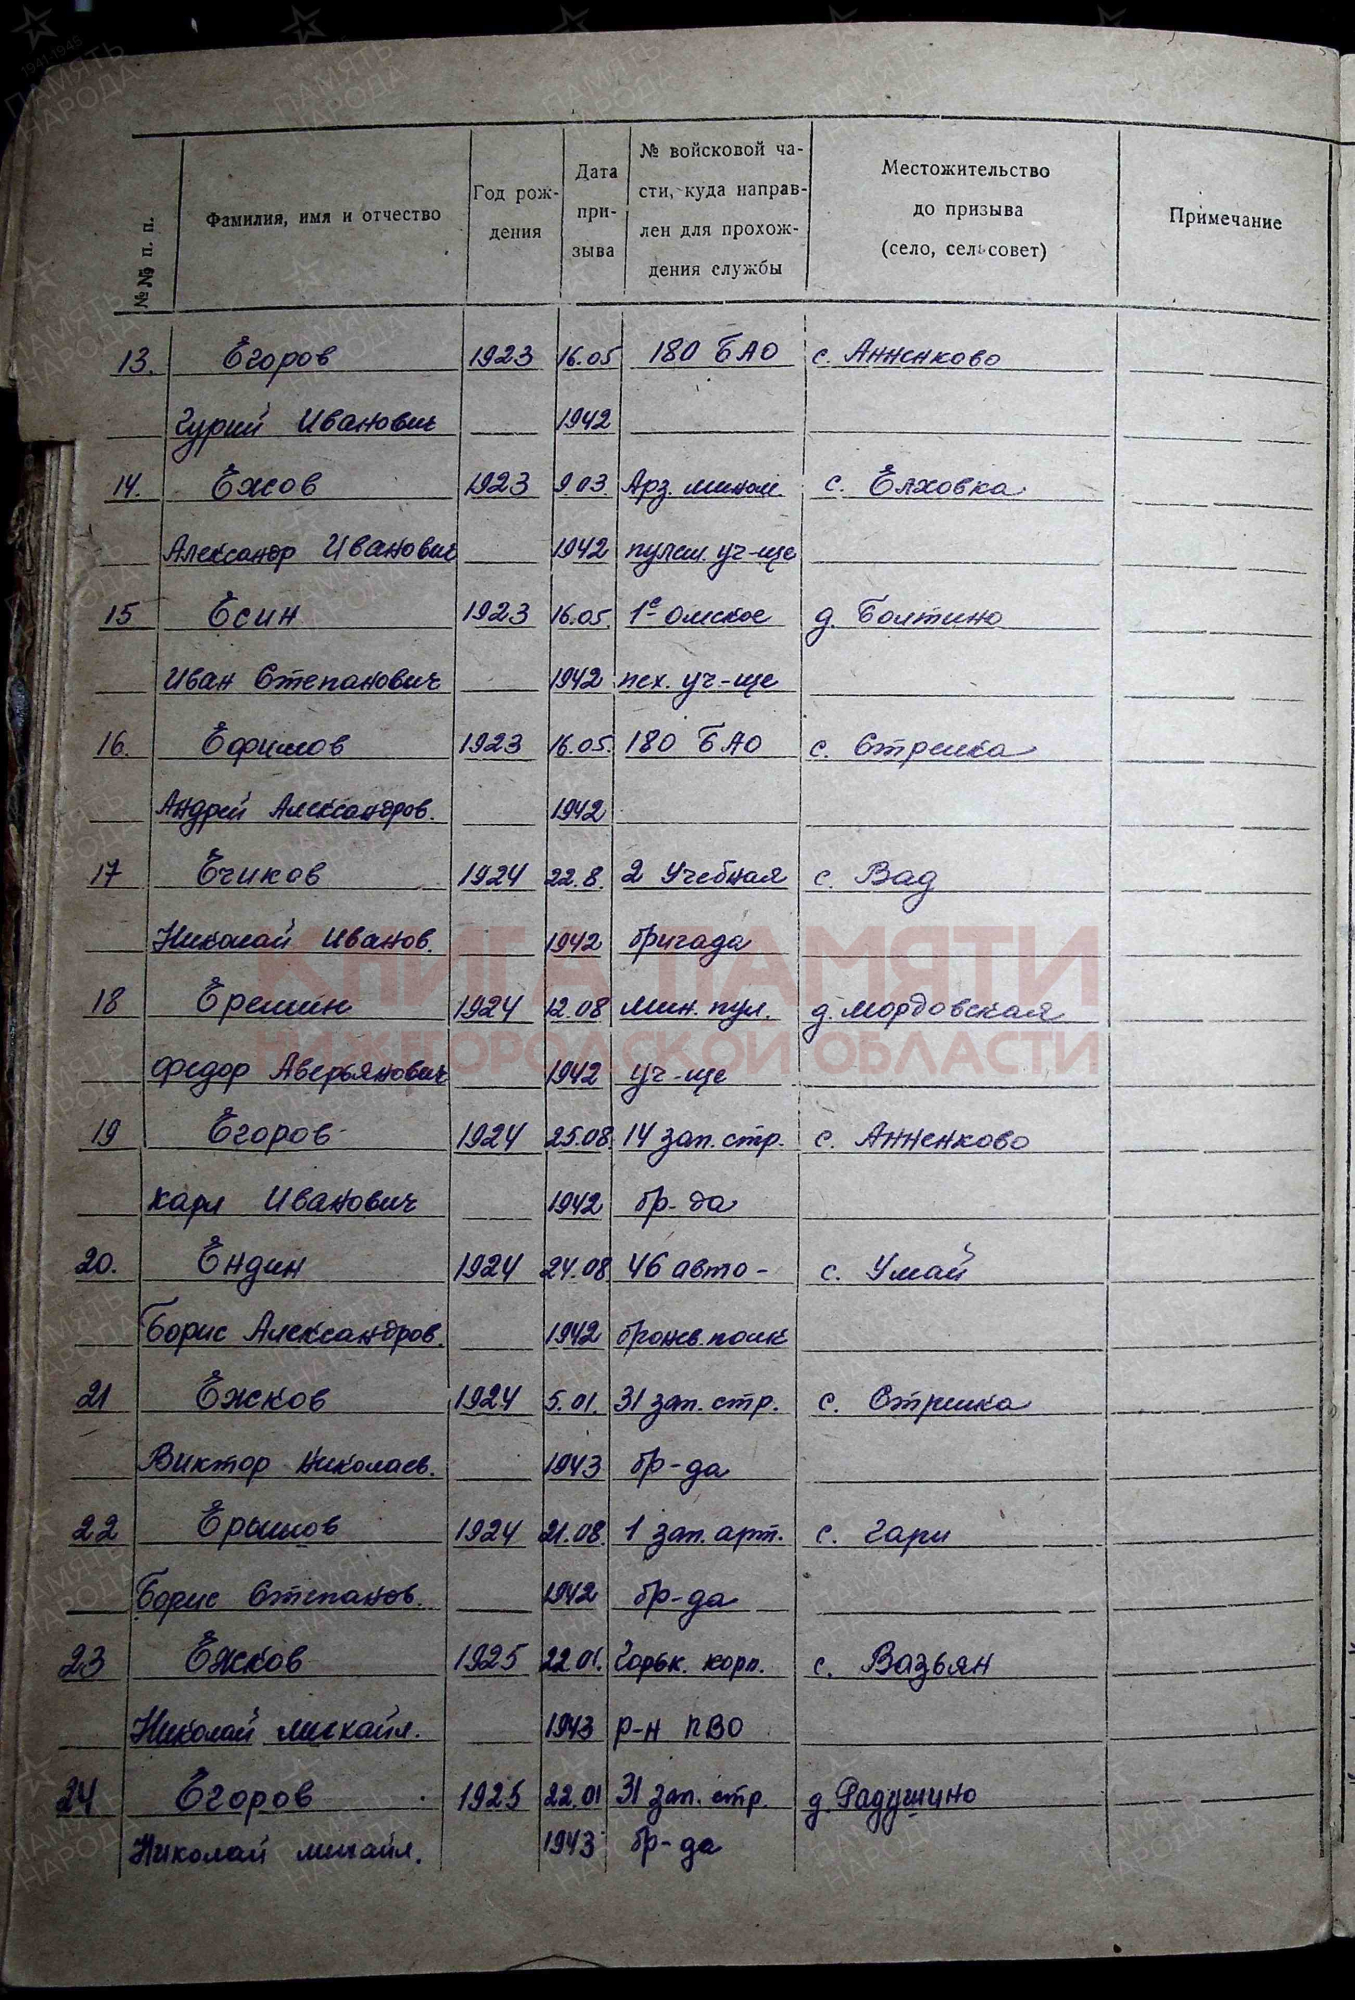 №№ п. п. Фамилия, имя и отчество Год рож- дения Дата при- зыва № войсковой ча- сти, куда направ- лен для прохож- дения службы Местожительство до призыва (село, сельсовет) Примечание
13. Егоров 1923 16.05 180 БАО с. Анненково
Гурий Иванович 1942
14. Ежов 1923 9.03 Арз. мином с. Елховка
Александр Иванович 1942 пулем. уч-ще
15 Есин 1923 16.05. 1е Омское д. Болтино
Иван Степанович 1942 пех. уч-ще
16. Ефимов 1923 16.05. 180 БАО с. Стрелка
Андрей Александров. 1942
17 Ечиков 1924 22.8. 2 Учебная с. Вад
Николай Иванов. 1942 бригада
18 Еремин 1924 12.08 мин. пул. д. Мордовская
Федор Аверьянович 1942 уч-ще
19 Егоров 1924 25.08. 14 зап. стр. с. Анненково
Карл Иванович 1942 бр-да
20. Ендин 1924 24.08 46 авто- с. Умай
Борис Александров. 1942 бронев. полк
21 Ежков 1924 5.01. 31 зап. стр. с. Стрелка
Виктор Николаев. 1943 бр-да
22 1924 21.08. 1 зап. арт. с. Гари
Борис Степанов. 1942 бр-да
23 Ежков 1925 22.01. Горьк. корп. с. Вазьян
Николай Михайл. 1943 р-н ПВО
24 Егоров 1925 22.01 31 зап. стр. д. Радушино
Николай Михайл. 1943 бр-да
КНИГА ПАМЯТИ
НИЖЕГОРОДСКОЙ ОБЛАСТИ
1941-1945
ПАМЯТЬ
НАРОДА